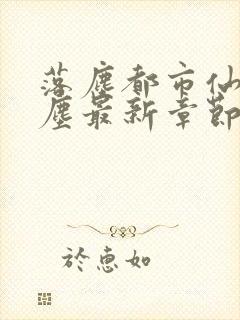 落塵都市仙
塵最新章節
於惠如